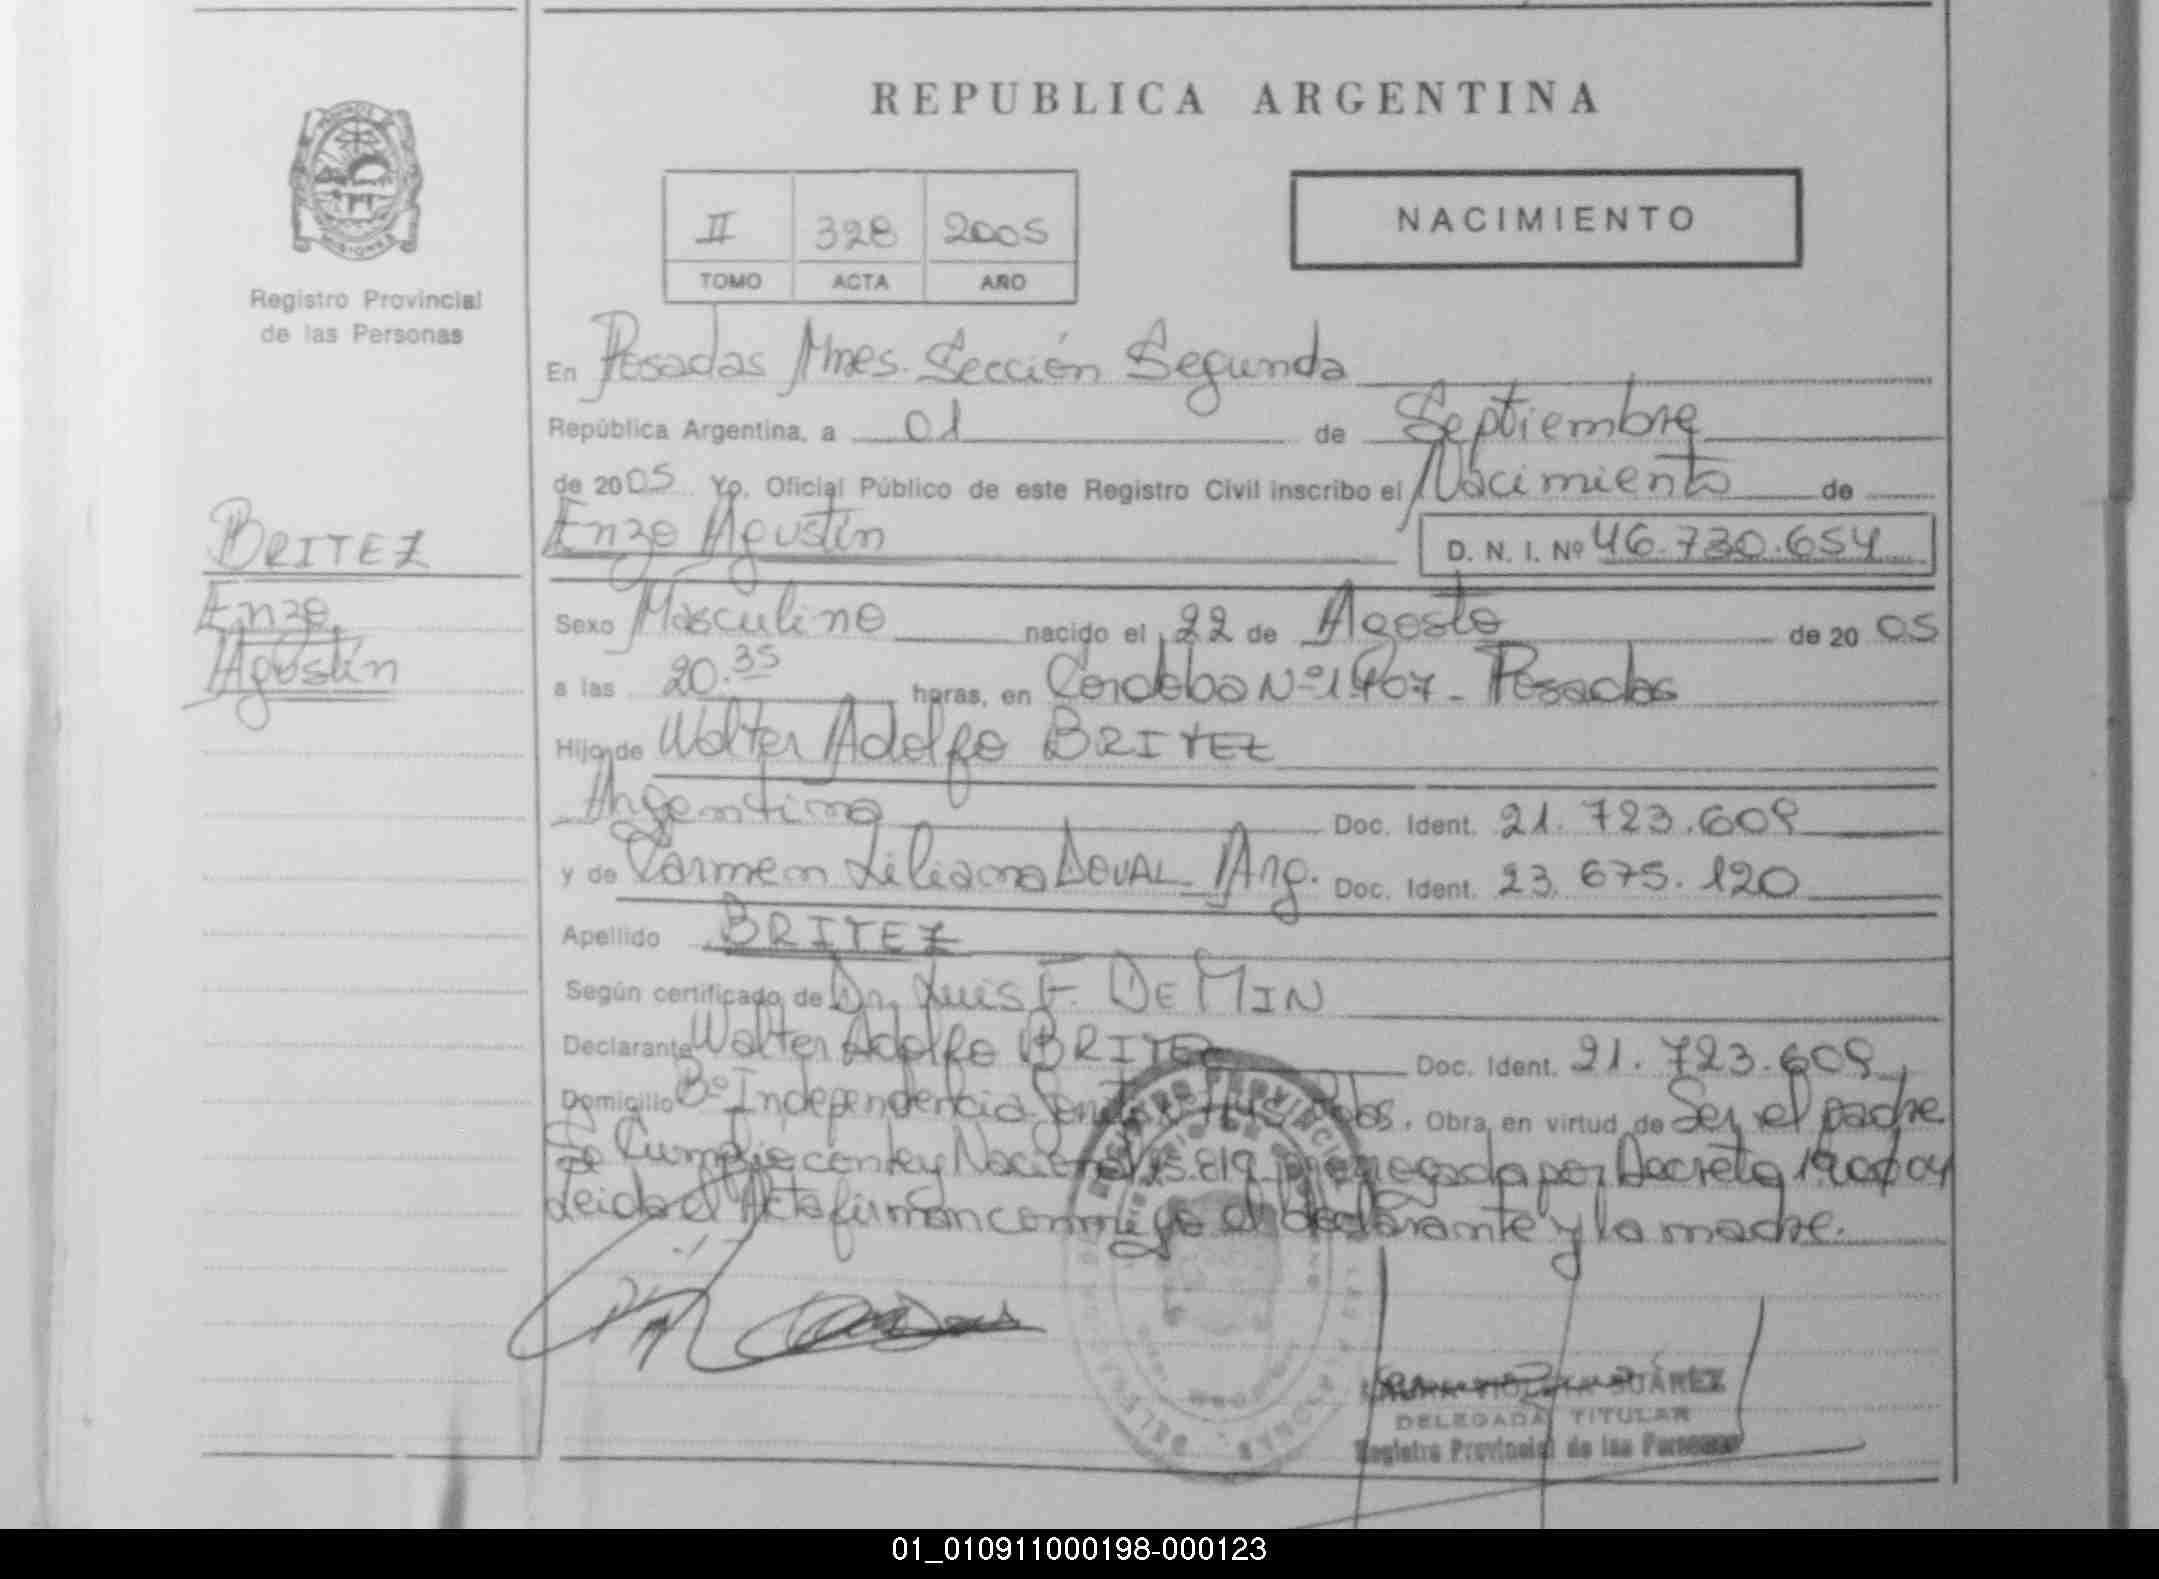 REPUBLICA ARGENTINA
Registro Provincial
de las Personas
II 328 2005
TOMO ACTA AÑO
NACIMIENTO
En Posadas Mnes. Sección Segunda
República Argentina, a 01 de Septiembre
de 2005 Yo, Oficial Público de este Registro Civil inscribo el Nacimiento de
Enzo Agustín
D. N. I. Nº 46.730.654
BRITEZ
Enzo
Agustín
Sexo Masculino nacido el 22 de Agosto de 2005
a las 20.35 horas, en Cordoba Nº 1467 - Posadas
Hijo de Walter Adolfo BRITEZ
Argentina Doc. Ident. 21.723.609
y de Carmen Liliana DOVAL - Arg. Doc. Ident. 23.675.120
Apellido BRITEZ
Según certificado de Dr. Luis F. DE MIN
Declarante Walter Adolfo BRITEZ Doc. Ident. 21.723.609
Domicilio Bº Independencia Pdas. Obra en virtud de Ser el padre
Se Cumple con Ley Nacional 15.819 prorrogada por Decreto
Leida el Acta firman conmigo el declarante y la madre.
SUÁREZ
DELEGADA TITULAR
Registro Provincial de las Personas
01_010911000198-000123